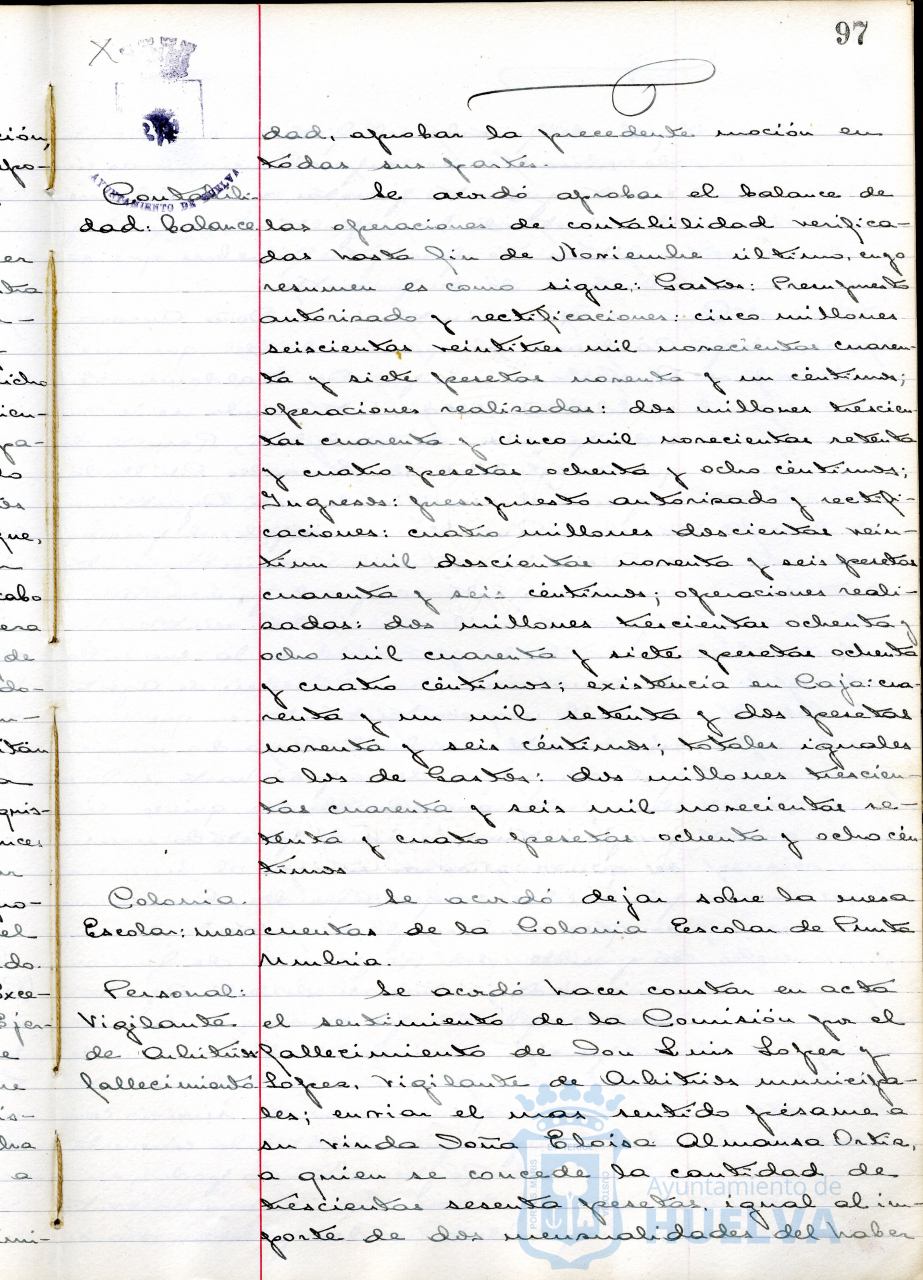 97
dad, aprobar la precedente moción en
todas sus partes.
Contabili-
dad: balance
Se acordó aprobar el balance de
las operaciones de contabilidad verifica-
das hasta fin de Noviembre último, cuyo
resumen es como sigue: Gastos: Presupuesto
autorizado y rectificaciones: cinco millones
seiscientas veintitres mil novecientas cuaren-
ta y siete pesetas noventa y un céntimos;
operaciones realizadas: dos millones trescien-
tas cuarenta y cinco mil novecientas setenta
y cuatro pesetas ochenta y ocho céntimos;
Ingresos: presupuesto autorizado y rectifi-
caciones: cuatro millones doscientas vein-
tiun mil doscientas noventa y seis pesetas
cuarenta y seis céntimos; operaciones reali-
zadas: dos millones trescientas ochenta y
ocho mil cuarenta y siete pesetas ochenta
y cuatro céntimos; existencia en Caja: cua-
renta y un mil setenta y dos pesetas
noventa y seis céntimos; totales iguales
a los de Gastos: dos millones trescien-
tas cuarenta y seis mil novecientas se-
tenta y cuatro pesetas ochenta y ocho cén
timos
Colonia
Escolar: mesa
Se acordó dejar sobre la mesa
cuentas de la Colonia Escolar de Punta
Umbria.
Personal:
Vigilante
de Arbitrios
fallecimiento
Se acordó hacer constar en acta
el sentimiento de la Comisión por el
fallecimiento de Don Luis Lopez y
Lopez, Vigilante de Arbitrios municipa-
les; enviar el mas sentido pésame a
su viuda Doña Eloisa Almansa Ortiz,
a quien se concede la cantidad de
trescientas sesenta pesetas, igual al im-
porte de dos mensualidades del haber
AYUNTAMIENTO DE HUELVA
Ayuntamiento de
HUELVA